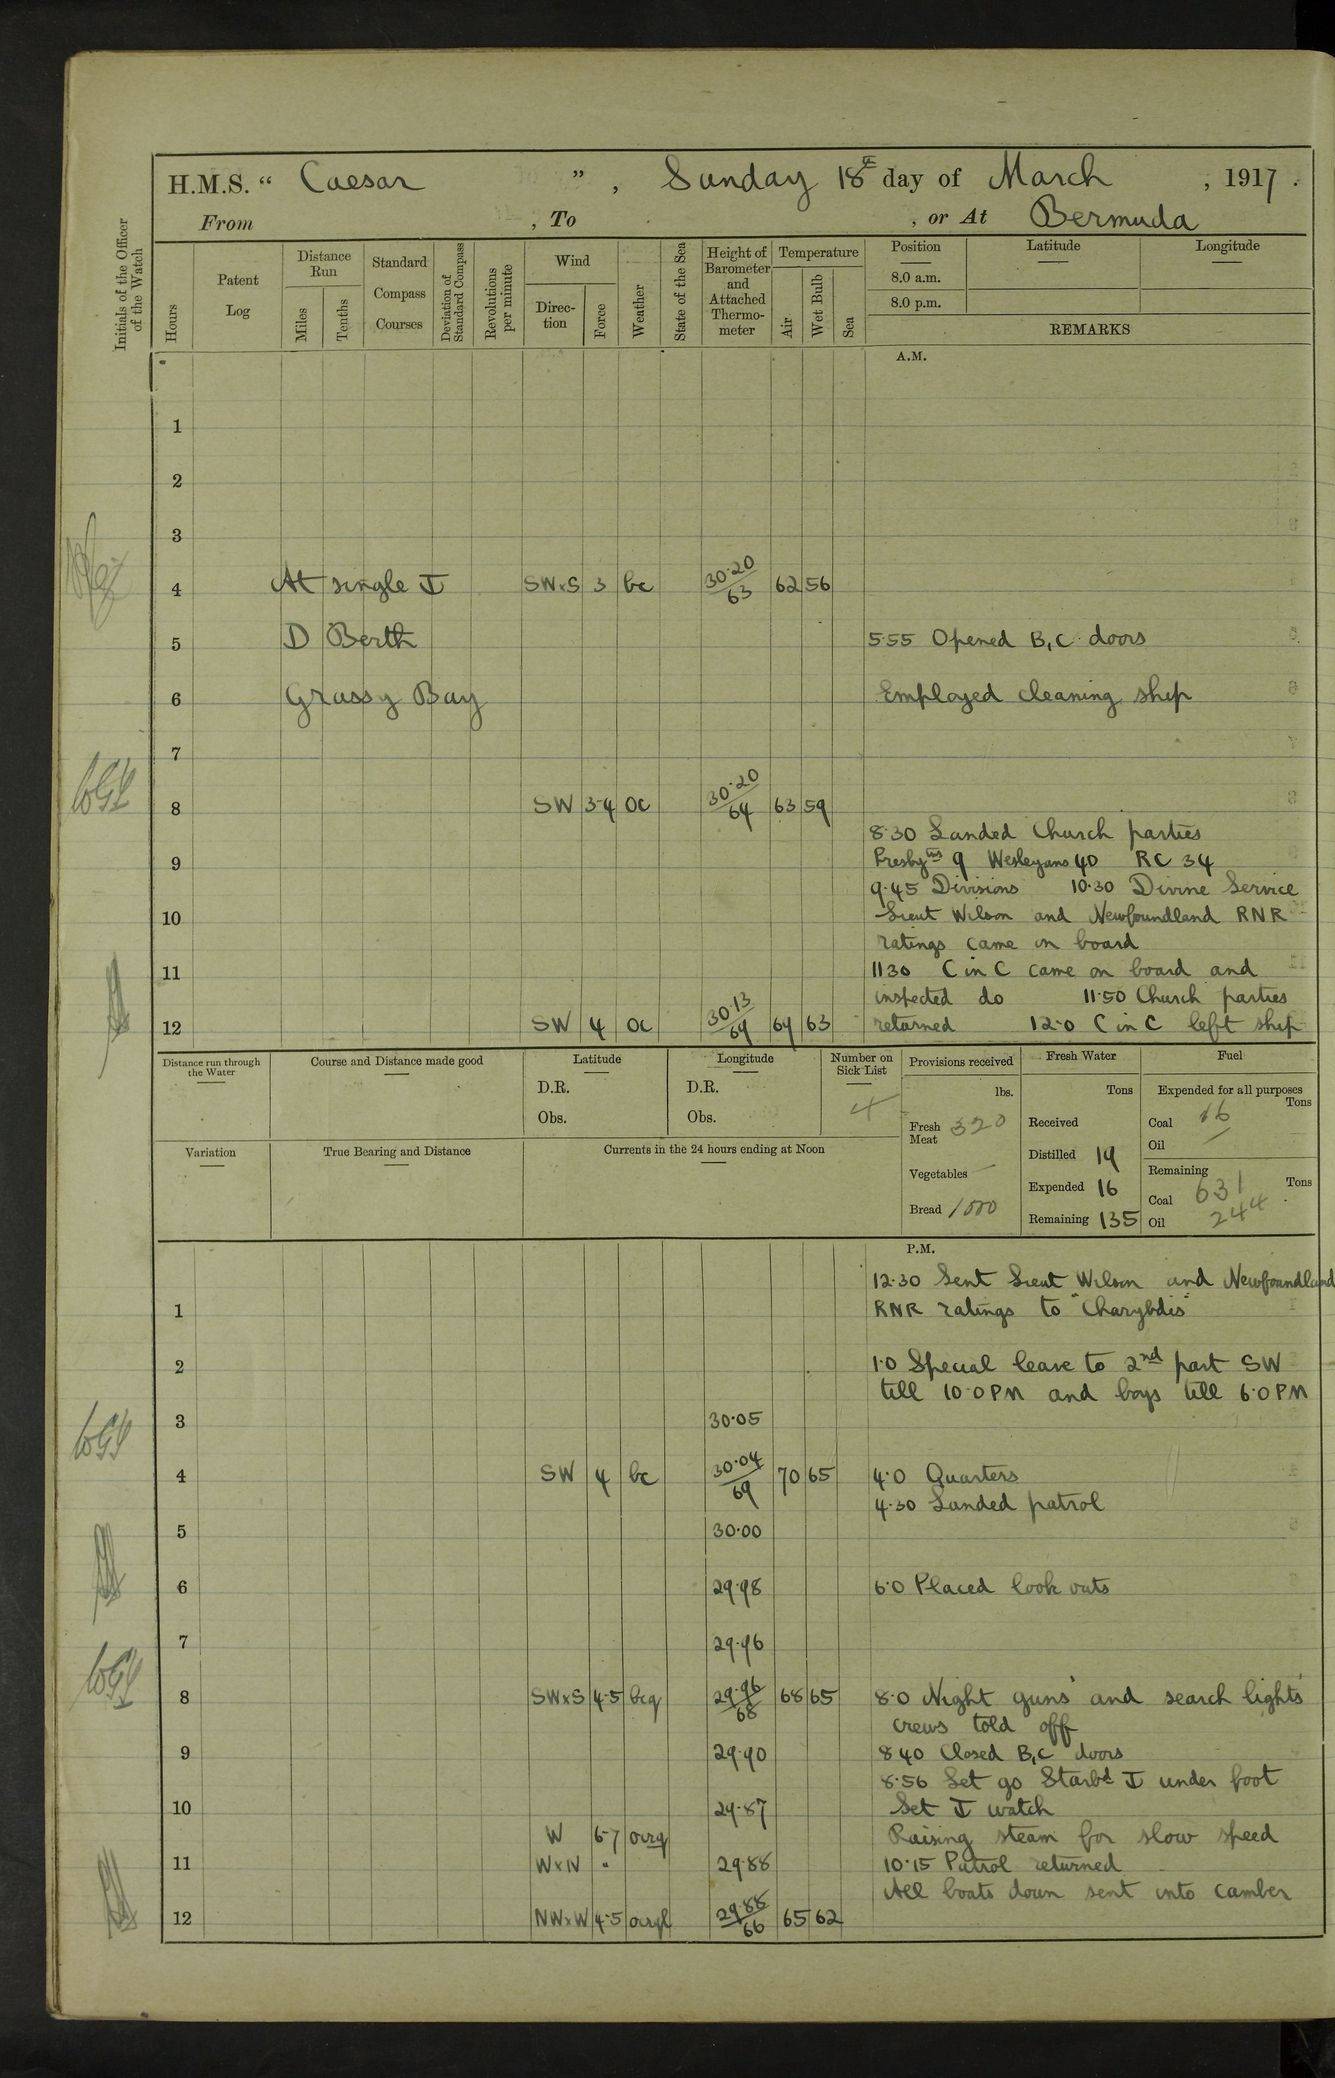 H.M.S. " Caesar ", Sunday 18th day of March, 1917.
From , To , or At Bermuda
Initials of the Officer of the Watch
Hours
Patent Log
Distance Run
Miles
Tenths
Standard Compass Courses
Deviation of Standard Compass
Revolutions per minute
Wind
Direc-tion
Force
Weather
State of the Sea
Height of Barometer and Attached Thermo-meter
Temperature
Air
Wet Bulb
Sea
Position Latitude Longitude
8.0 a.m.
8.0 p.m.
REMARKS
A.M.
1
2
3
4 At single SWxS 3 bc 30.20/63 62 56
5 D Berth 5.55 Opened B,C doors
6 Grassy Bay Employed cleaning ship
7
8 SW 3-4 oc 30.20/64 63 59
8.30 Landed Church parties
9 Presbytns 9 Wesleyans 40 RC 34
9.45 Divisions 10.30 Divine Service
10 Lieut Wilson and Newfoundland RNR
ratings came on board
11 1130 C in C came on board and
inspected do 11.50 Church parties
12 SW 4 oc 30.13/69 64 63 returned 12.0 C in C left ship
Distance run through the Water
Course and Distance made good
Latitude
D.R.
Obs.
Longitude
D.R.
Obs.
Number on Sick List
4
Provisions received
lbs.
Fresh Meat 320
Vegetables —
Bread 1000
Fresh Water
Tons
Received
Distilled 19
Expended 16
Remaining 135
Fuel
Expended for all purposes
Tons
Coal 16
Oil —
Remaining
Tons
Coal 631
Oil 244
Variation
True Bearing and Distance
Currents in the 24 hours ending at Noon
P.M.
12.30 Sent Lieut Wilson and Newfoundland
1 RNR ratings to "Charybdis"
2 1.0 Special leave to 2nd part SW
till 10.0 PM and boys till 6.0 PM
3 30.05
4 SW 4 bc 30.04/69 70 65 4.0 Quarters
4.30 Landed patrol
5 30.00
6 29.98 6.0 Placed look outs
7 29.96
8 SWxS 4-5 bcq 29.96/68 68 65 8.0 Night guns' and search lights'
crews told off
9 29.90 8.40 Closed B,C doors
8.56 Let go Starbd under foot
10 29.87 Set watch
W 6-7 ocrq Raising steam for slow speed
11 WxN " 29.88 10.15 Patrol returned
All boats down sent into camber
12 NWxW 4-5 ocrql 29.88/66 65 62